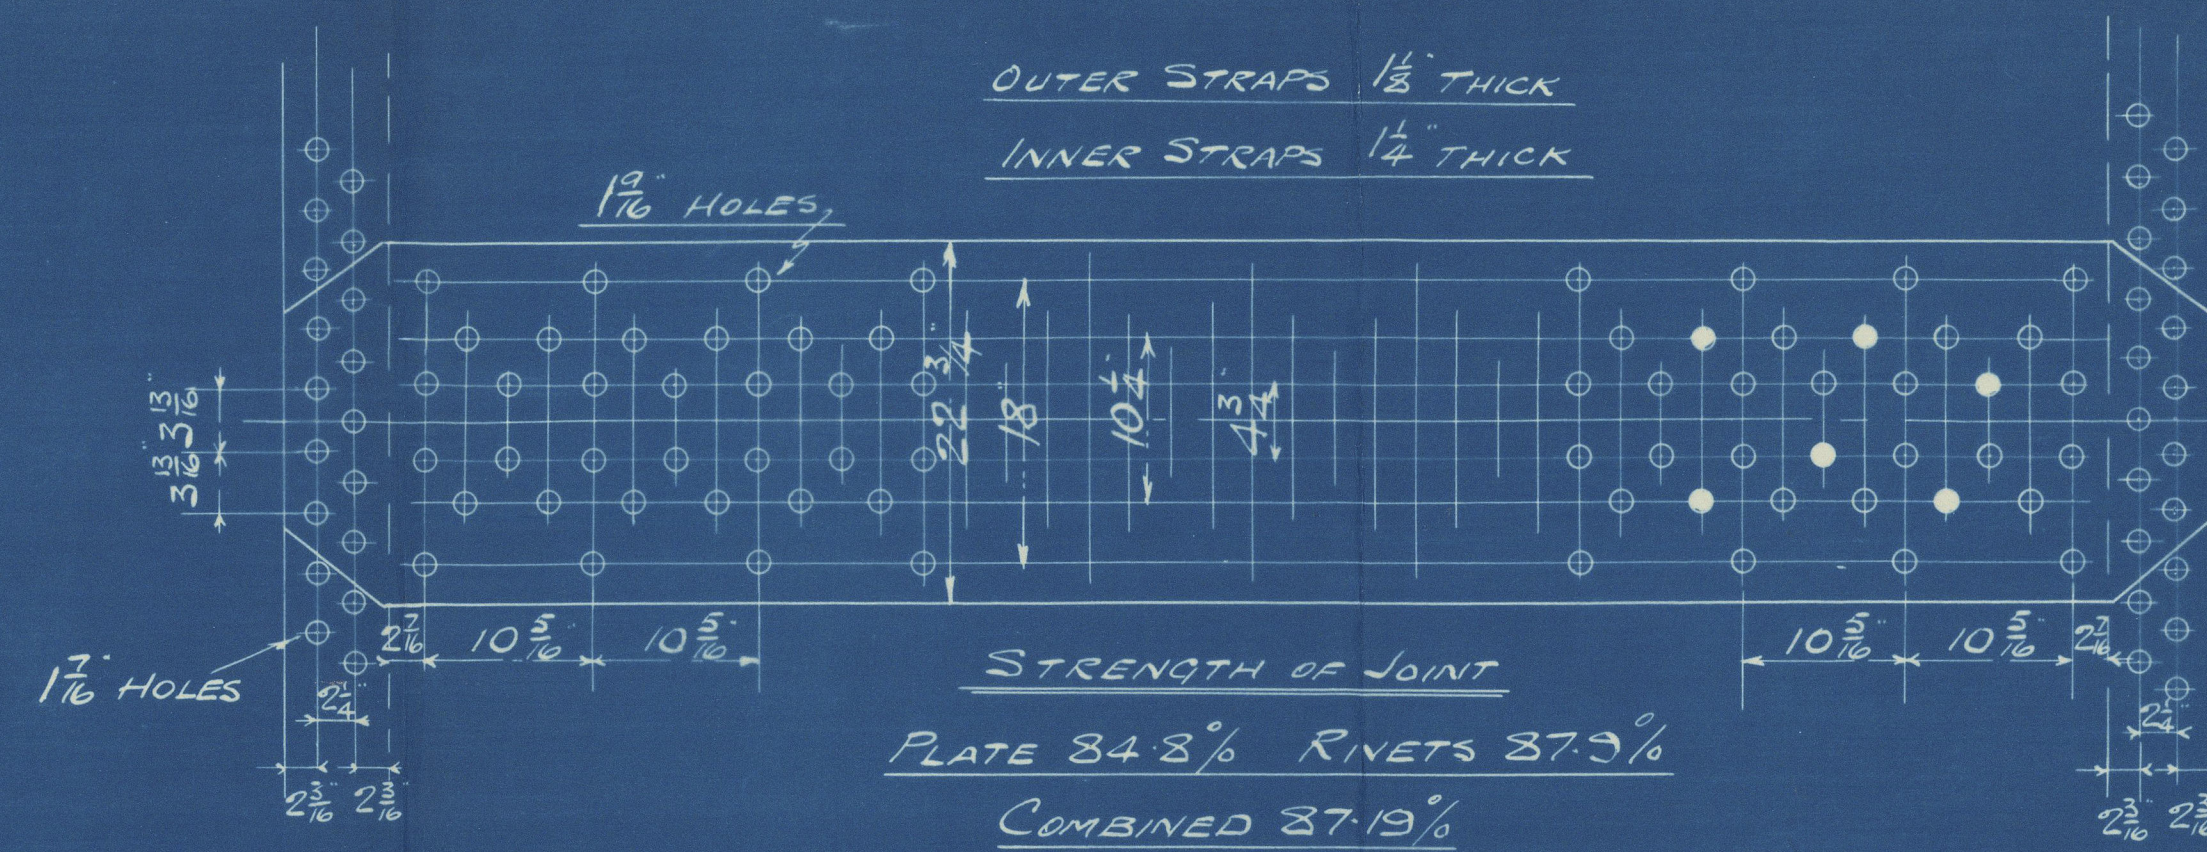 OUTER STRAPS 1 1/8" THICK
INNER STRAPS 1 1/4" THICK
1 9/16" HOLES
22 3/4"
18"
10 1/4"
4 3/4"
3 13/16"
3 13/16"
2 7/16"
10 5/16"
10 5/16"
10 5/16"
10 5/16"
2 7/16"
1 7/16" HOLES
2 1/4"
2 1/4"
2 3/16"
2 3/16"
2 3/16"
STRENGTH OF JOINT
PLATE 84.8% RIVETS 87.9%
COMBINED 87.19%